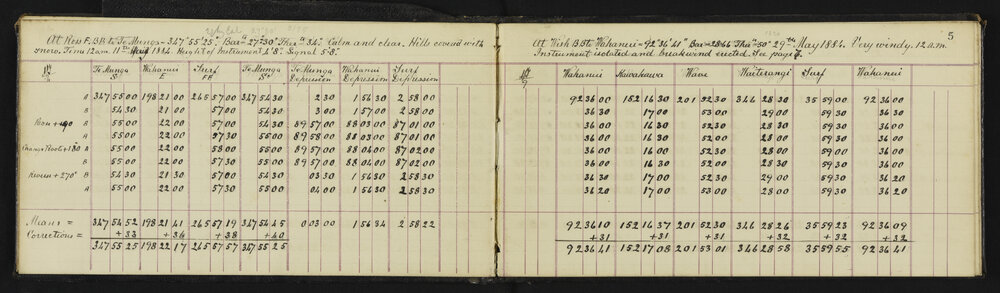 At Ross F. BB to Te Munga = 347° 55' 25". Bar = 27.30 Ther = 34. Calm and clear. Hills covered with
snow. Time 12 a.m. 11th May 1884. Height of Instrument 4'8" Signal 5'8".
Te Munga Wahanui Surf Te Munga Te Munga Wahanui Surf
Depression Depression Depression
A 347 55 00 198 21 00 265 57 00 347 54 30 2 30 1 56 30 2 58 00
B 54 30 21 00 57 00 54 30 3 00 1 57 00 2 58 00
+90 B 55 00 22 00 57 00 54 30 89 57 00 88 03 00 87 01 00
A 55 00 22 00 57 30 55 00 89 58 00 88 03 00 87 01 00
+180 A 55 00 22 00 58 00 55 00 89 57 00 88 04 00 87 02 00
B 55 00 22 00 57 30 55 00 89 57 00 88 04 00 87 02 00
+270° B 54 30 21 30 57 00 54 30 03 30 1 56 30 2 58 30
A 55 00 22 00 57 30 55 00 04 00 1 56 30 2 58 30
Means = 347 54 52 198 21 41 265 57 19 347 54 45 0 03 00 1 56 34 2 58 22
Corrections = +33 +36 +38 +40
347 55 25 198 22 17 265 57 57 347 55 25
5
At Wish B. BB to Wahanui = 92° 36' 41" Bar = 28.66 Ther = 50° 29th May 1884. Very windy. 12 a.m.
Instrument isolated and breakwind erected. See page 7.
Wahanui Kawakawa Wave Waiterangi Surf Wahanui
92 36 00 152 16 30 201 52 30 346 28 30 35 59 00 92 36 00
36 30 17 00 53 00 29 00 59 30 36 00
36 00 16 30 52 30 28 30 59 30 36 00
36 00 16 30 52 00 28 00 59 30 36 00
36 00 16 30 52 30 28 00 59 30 36 00
36 00 16 30 52 00 28 00 59 30 36 00
36 30 17 00 52 30 29 00 59 30 36 20
36 20 17 00 53 00 28 00 59 30 36 20
92 36 10 152 16 37 201 52 30 346 28 26 35 59 23 92 36 09
+31 +31 +31 +32 +32 +32
92 36 41 152 17 08 201 53 01 346 28 58 35 59 55 92 36 41